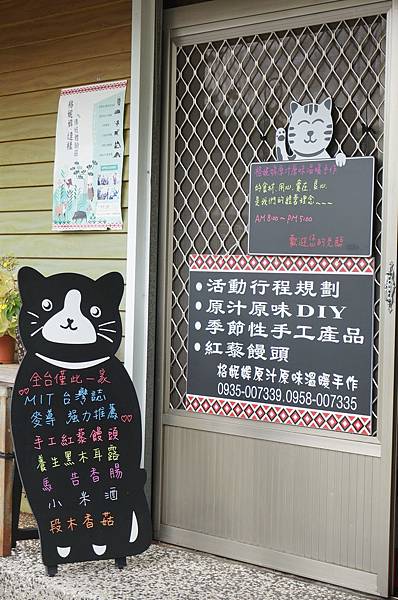 格妮娥‧溫暖
格妮娥原汁原味溫暖手作
的食材.用心.實在.良心
是我們的經營理念~~~
AM8:00~PM5:00
歡迎您的光臨
•活動行程規劃
•原汁原味DIY
•季節性手工產品
•紅藜饅頭
格妮娥原汁原味溫暖手作
0935-007339.0958-007335
全台僅此一家
MIT台灣認
麥導 強力推薦
手工紅藜饅頭
養生黑木耳露
馬告香腸
小米酒
段木香菇